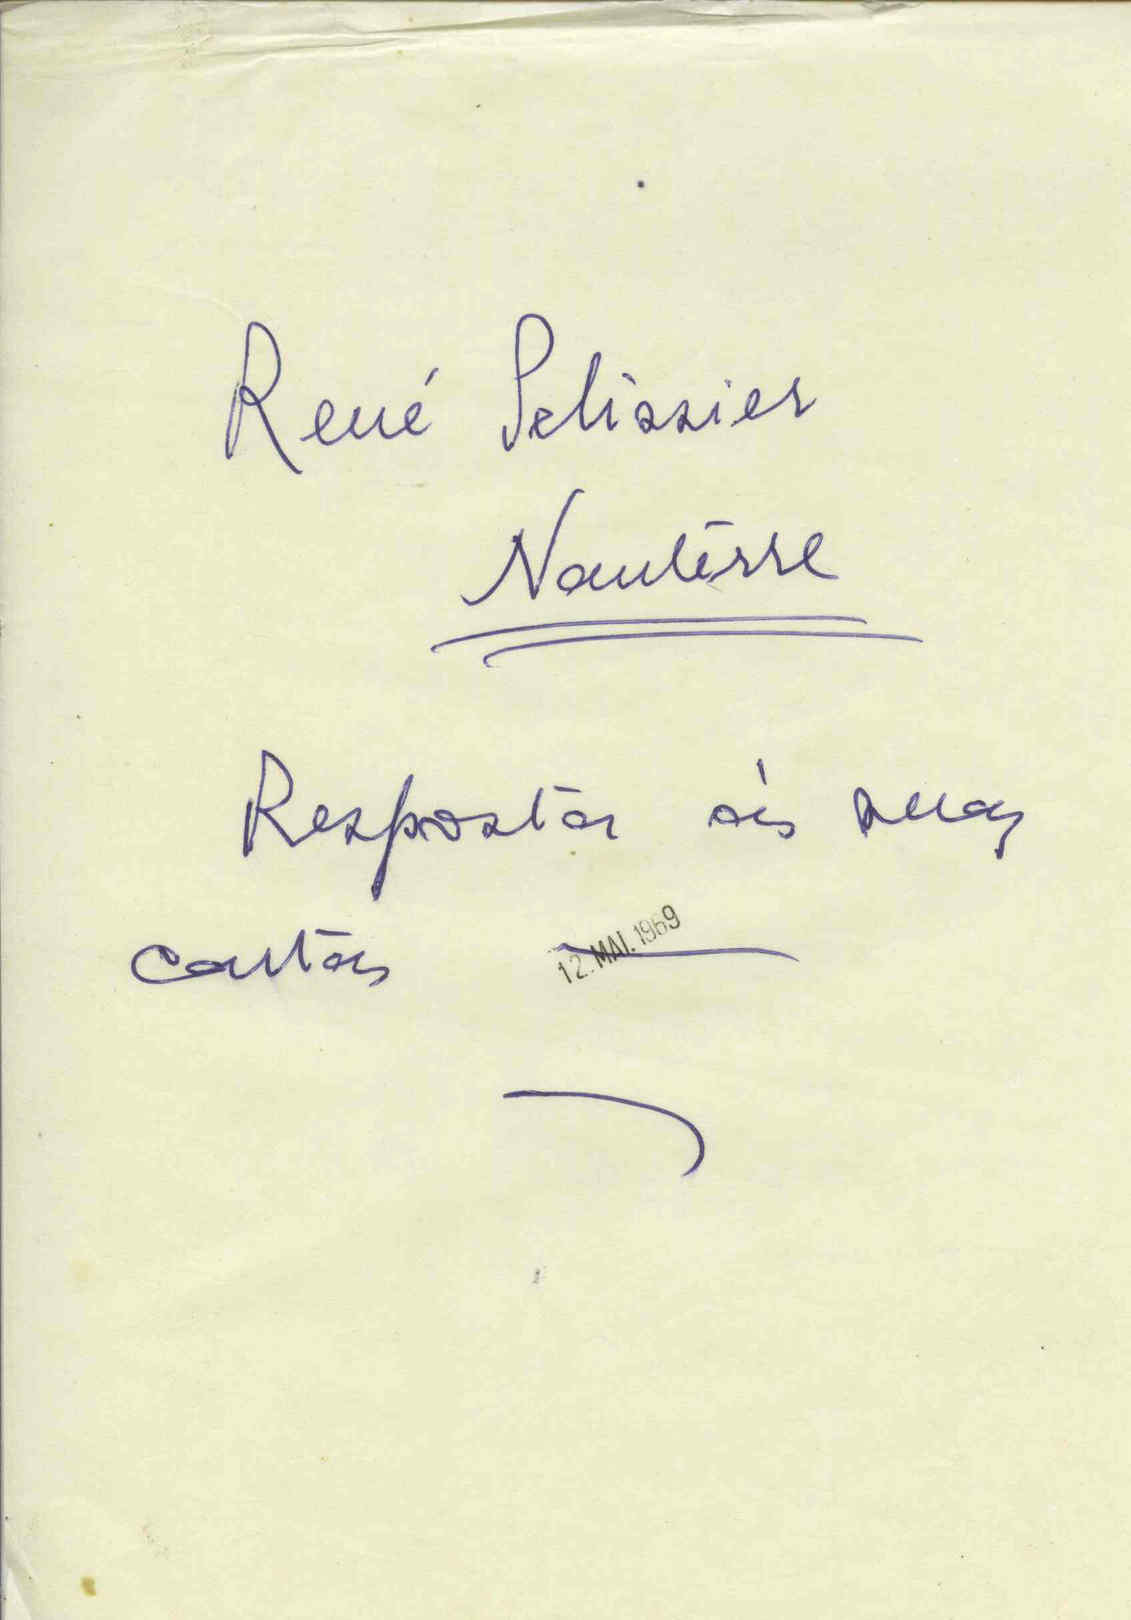 René Pelissier
Nanterre
Resposta às suas
cartas
12. MAI. 1969